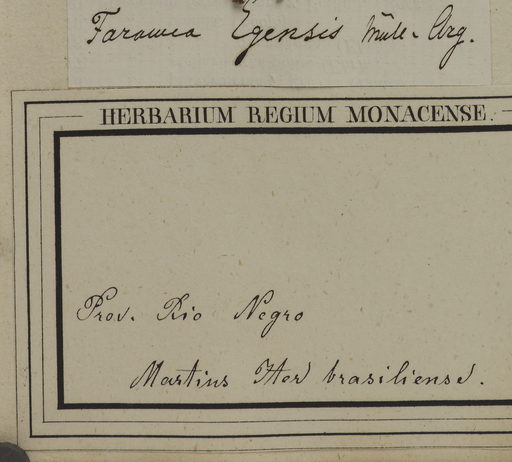 Faramea Egensis Müll. Arg.
HERBARIUM REGIUM MONACENSE.
Prov. Rio Negro
Martius Iter brasiliense.